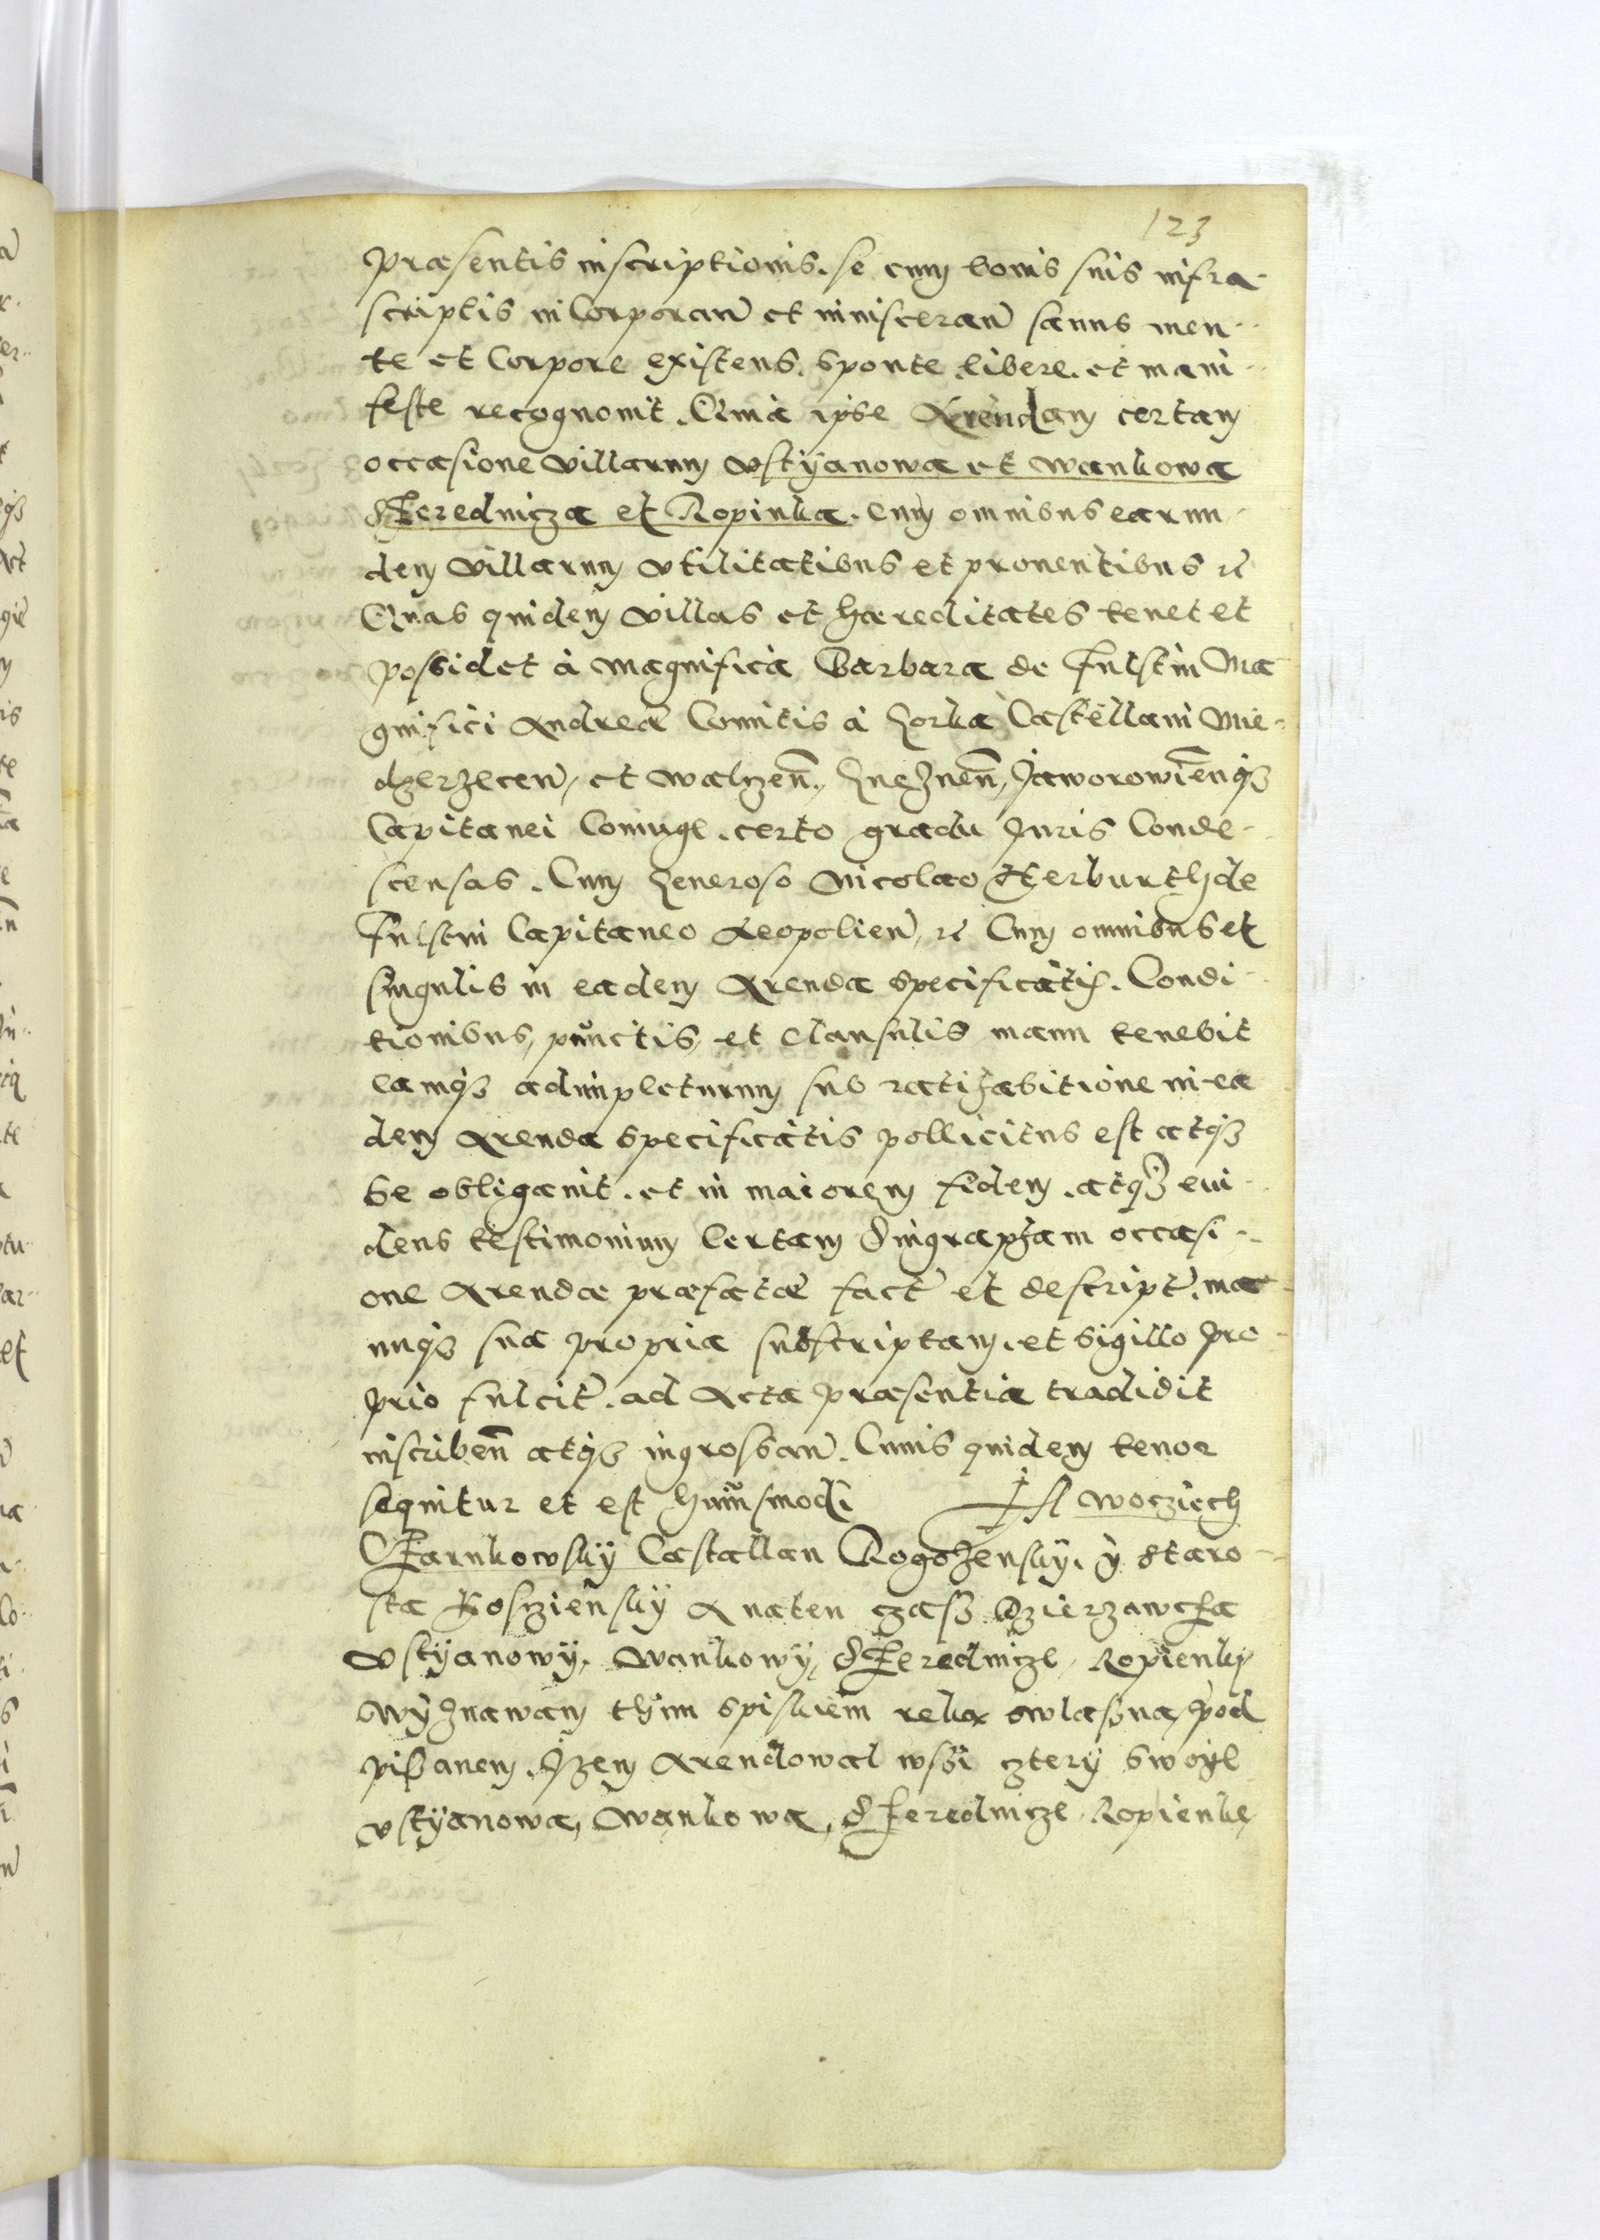 123
præsentis inscriptionis. se cum bonis suis infra-
scriptis inCorporan̄ et inuisceran̄ sanus men-
te et Corpore existens. sponte libere. et mani-
feste recognouit. Quia ipse Arendam certam
occasione villarum Vstÿanowa et Wankowa
Stherednicza et Ropinka. Cum omnibus earun-
dem villarum vtilitatibus et prouentibus etc
Quas quidem villas et hæreditates tenet et
possidet à Magnifica Barbara de Fulstin Ma
gnifici Andreæ Comitis à Gorka Castellani Mie-
dzerzecen̄, et Walczen̄., Gneznen̄, Jaworowien̄qʒ
Capitanei Coniuge. certo gradu Juris Conde-
scensas. Cum Generoso Nicolao Herburth de
Fulstin Capitaneo Leopolien̄, etc Cum omnibus et
singulis in eadem Arenda specificatis. Condi-
tionibus, punctis, et Clausulis manu tenebit
eamqʒ adimpleturum sub ratihabitione in ea
dem Arenda specificatis pollicitus est atqʒ
se obligauit. et in maiorem fidem. atqʒ eui-
dens testimonium Certam Singrapham occasi-
one Arendæ præfatæ fact̄ et descript̄. ma
nuqʒ sua propria subscriptam. et sigillo pro-
prio fulcit̄. ad Acta præsentia tradidit
inscriben̄ atqʒ ingrossan̄. Cuius quidem tenor
sequitur et est huiusmodi Ja Woczięch
Czarnkowskÿ Castallan Rogozenskÿ. ÿ Staro-
sta Kosczienskÿ A naten czasz Dzierzawcza
Vstÿanowÿ. Wankowÿ, Stherednicze, Ropienkÿ
Wÿznawam thÿm spiskiem reką swlasną pod
pisanem. Jzem Arendowal wsÿi cztery swoÿe
Vstÿanowa, Wankowa, Stherednicze Ropienke